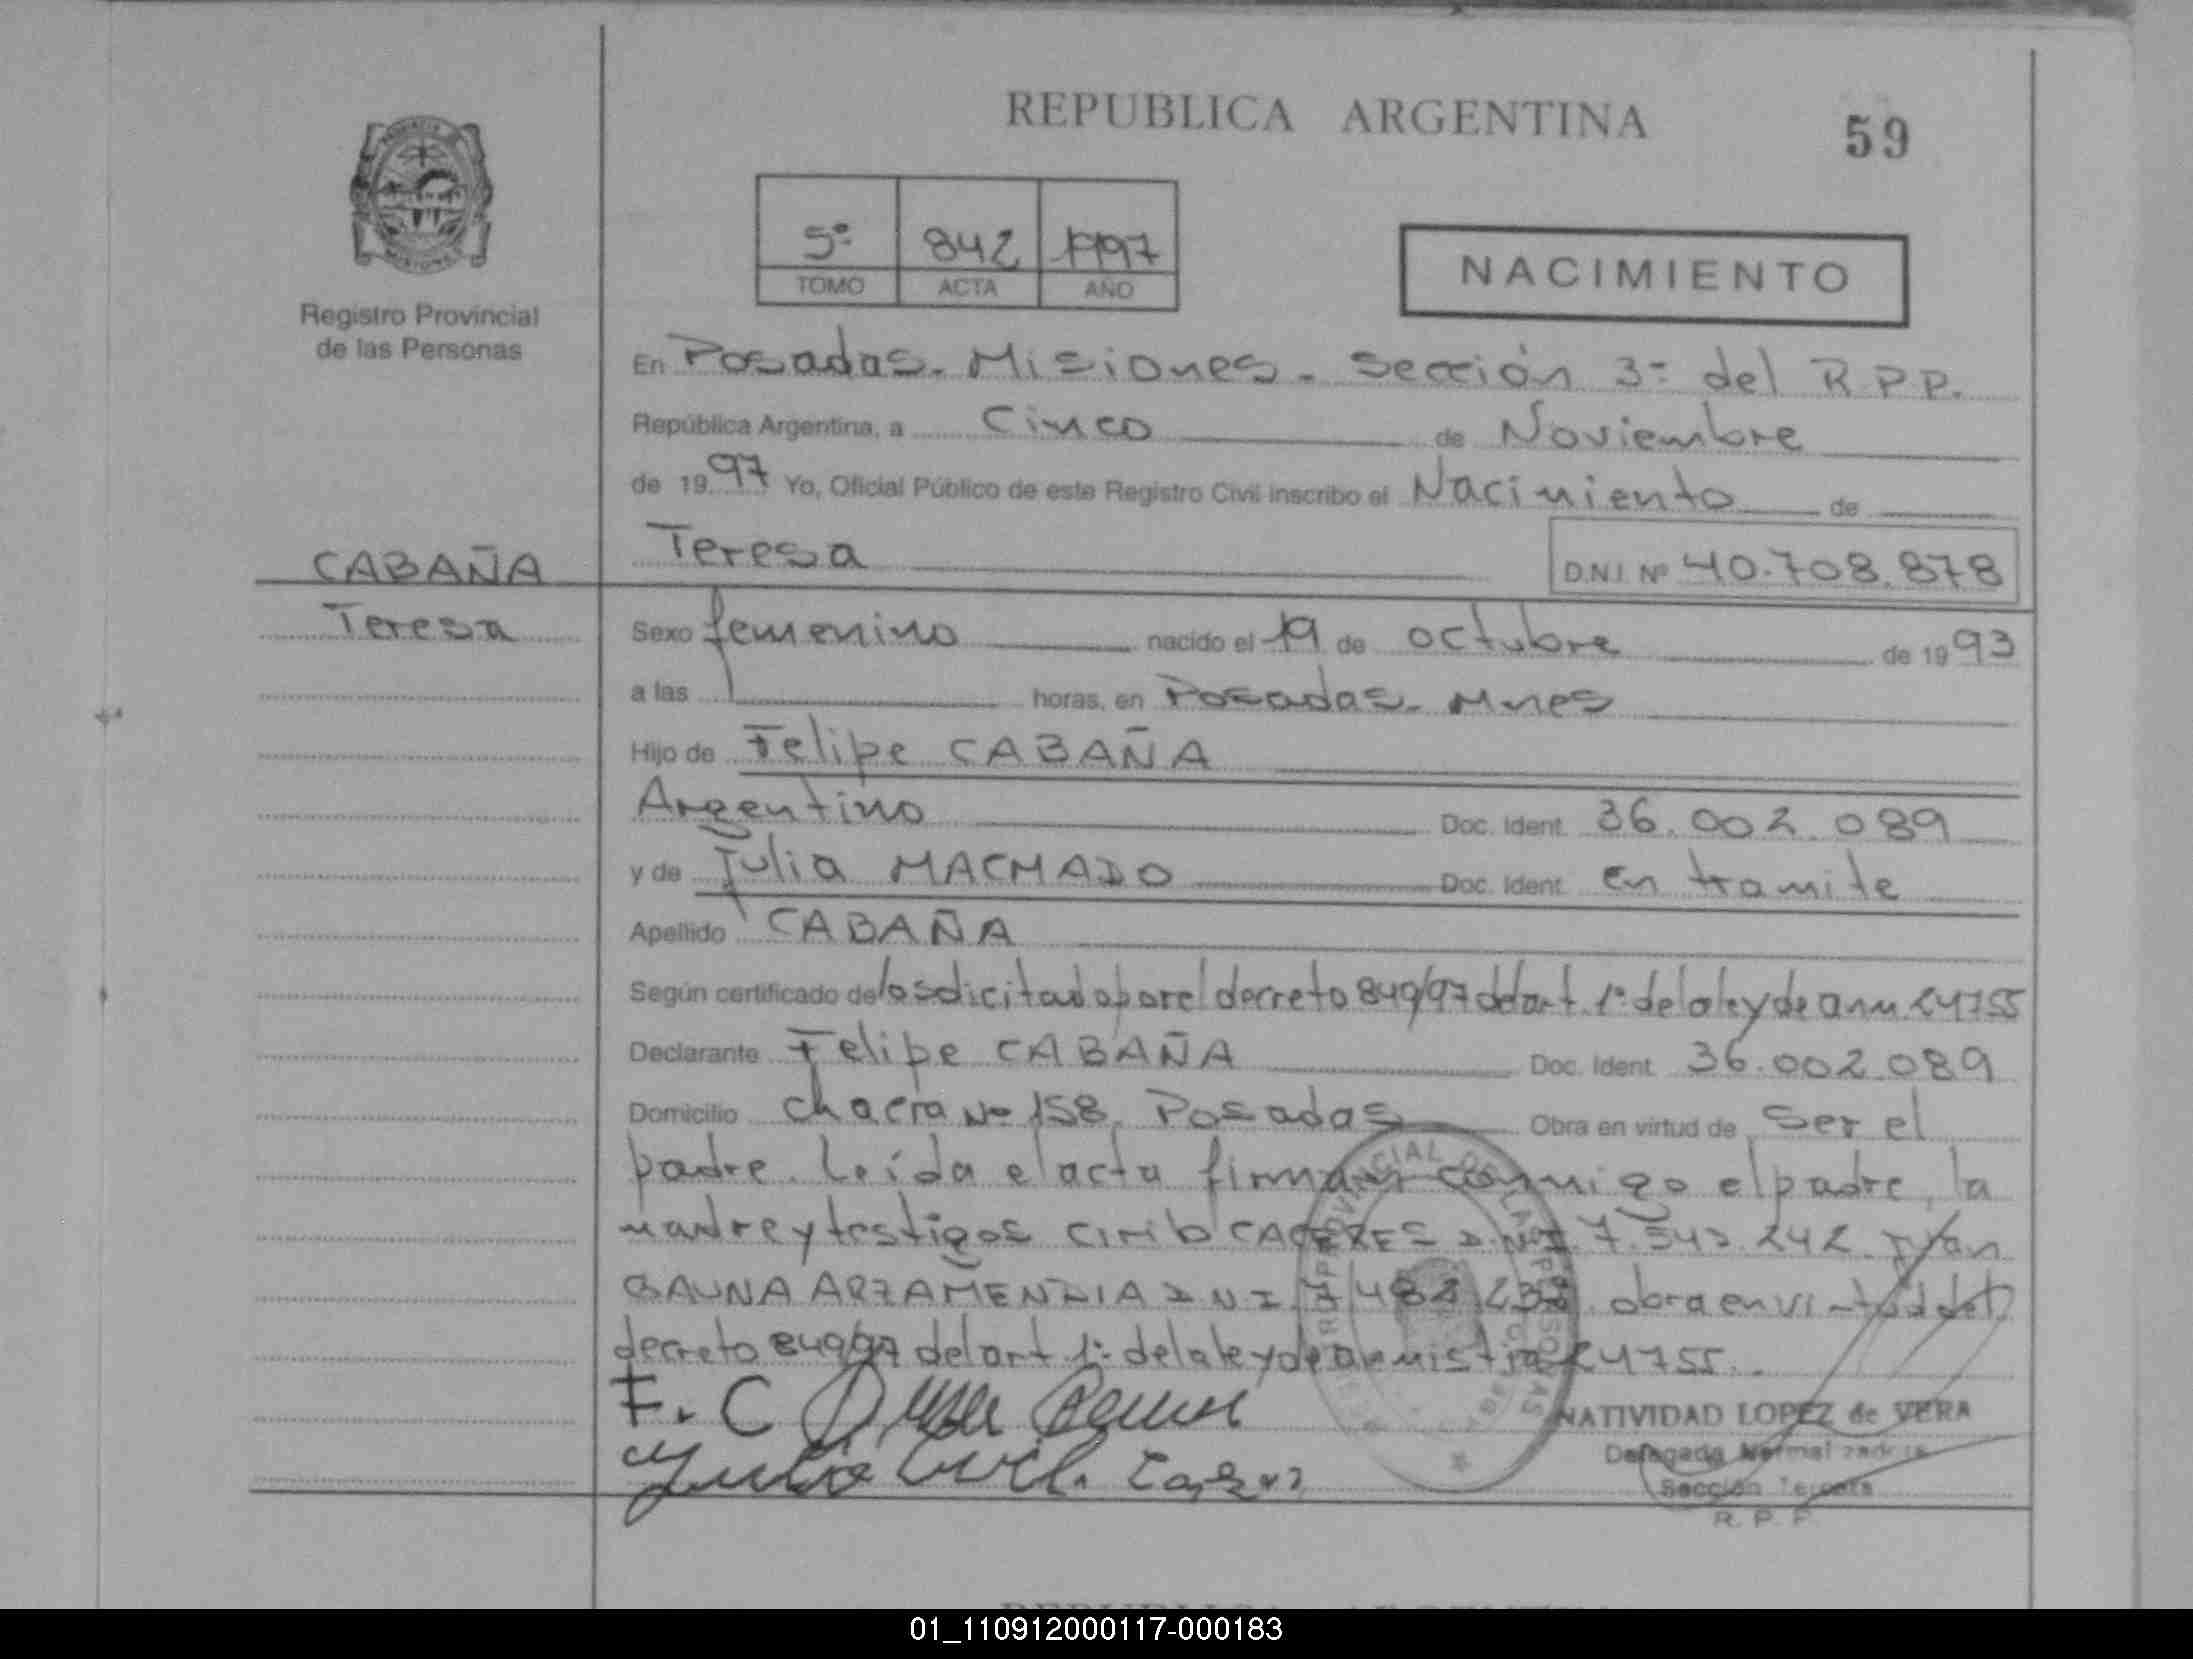 REPUBLICA ARGENTINA
59
5º 842 1997
TOMO ACTA AÑO
NACIMIENTO
Registro Provincial
de las Personas
En Posadas. Misiones. Sección 3º del R.P.P.
República Argentina, a Cinco de Noviembre
de 1997 Yo, Oficial Público de este Registro Civil inscribo el Nacimiento de
CABAÑA
Teresa
Teresa
D.N.I. Nº 40.708.878
Sexo femenino nacido el 19 de octubre de 1993
a las horas, en Posadas. Mnes
Hijo de Felipe CABAÑA
Argentino Doc. Ident. 36.002.089
y de Julia MACHADO Doc. Ident. en tramite
Apellido CABAÑA
Según certificado de lo solicitado por el decreto 849/97 del art. 1º de la ley de amn. 24755
Declarante Felipe CABAÑA Doc. Ident. 36.002.089
Domicilio chacra Nº 158. Posadas Obra en virtud de ser el
padre. Leída el acta firman conmigo el padre, la
madre y testigos Cirilo CACERES D.N.I. 7.542.242.
GAUNA ARZAMENDIA D.N.I. obra en virtud del
decreto 849/97 del art. 1º de la ley de amnistia 24755.
F. C
NATIVIDAD LOPEZ de VERA
Delegada Normalizadora
Sección Tercera
R. P. P.
01_110912000117-000183